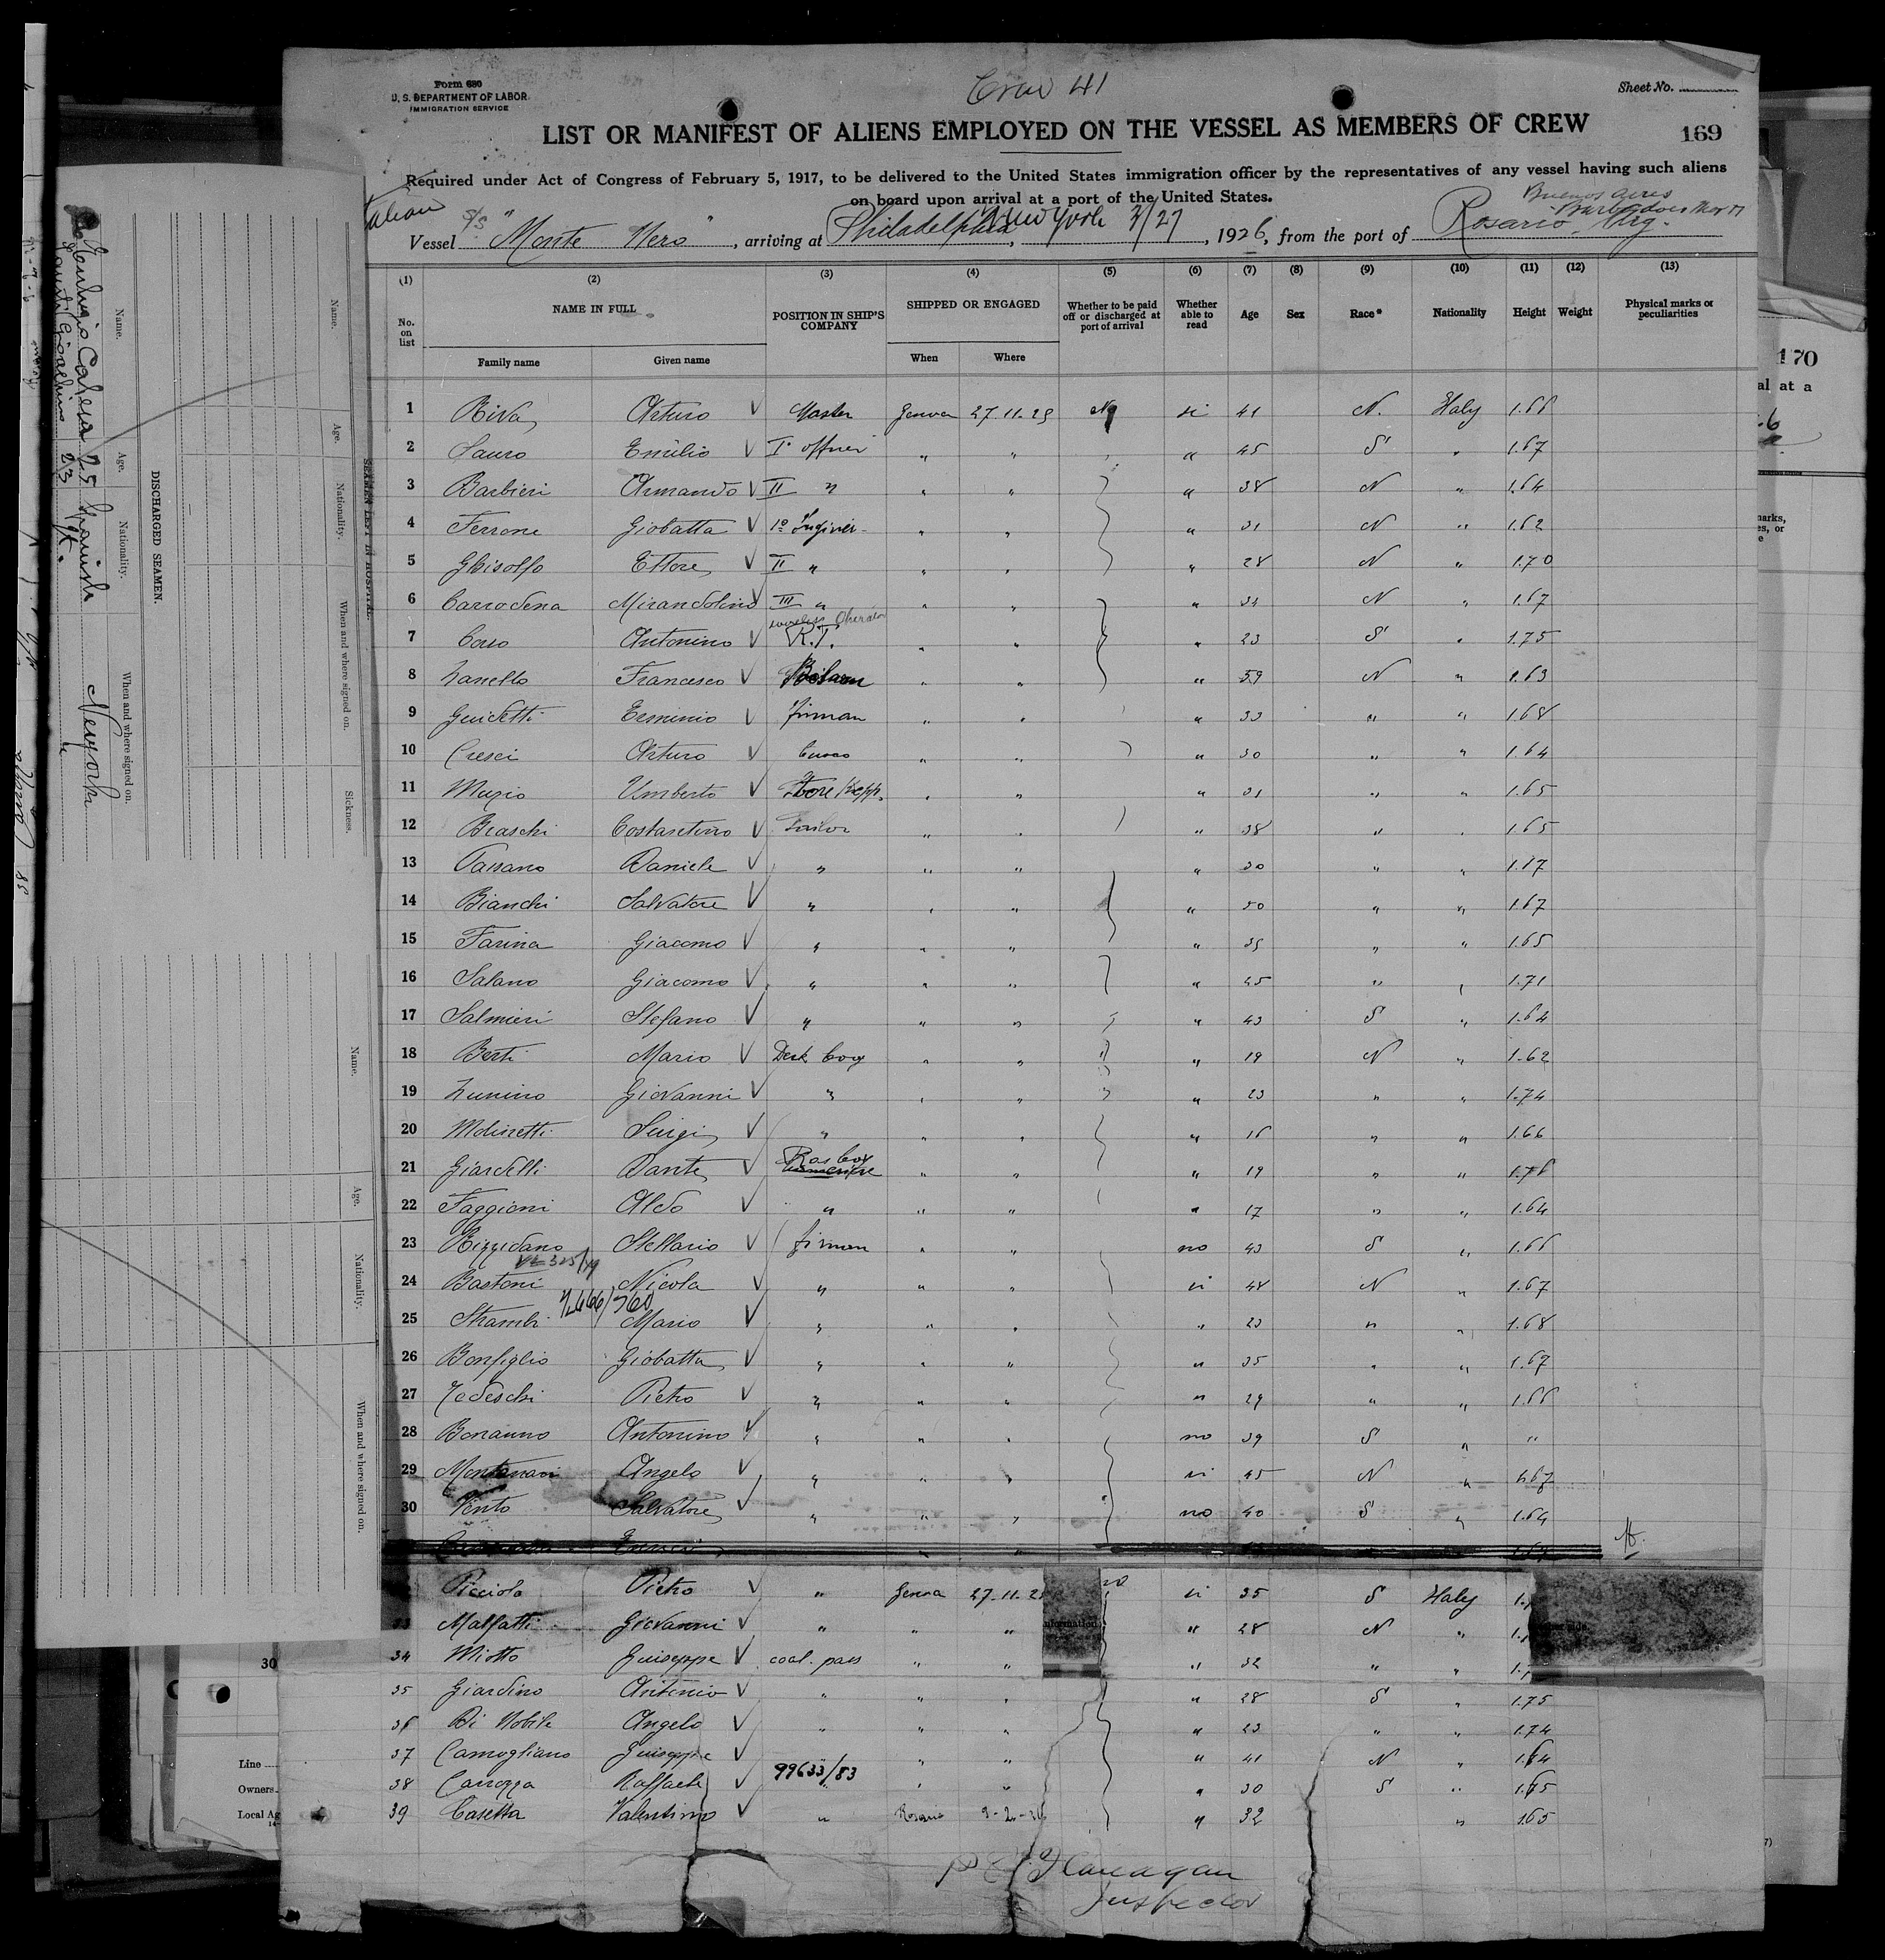 Form 680
U. S. DEPARTMENT OF LABOR
IMMIGRATION SERVICE
Crew 41
Sheet No.
LIST OR MANIFEST OF ALIENS EMPLOYED ON THE VESSEL AS MEMBERS OF CREW
169
Required under Act of Congress of February 5, 1917, to be delivered to the United States immigration officer by the representatives of any vessel having such aliens
on board upon arrival at a port of the United States.
Italian
Buenos Aires
Barbadoes Mar 17
Vessel S/S "Monte Nero", arriving at Philadelphia, New York 3/27, 1926, from the port of Rosario - Arg.
(1) (2) (3) (4) (5) (6) (7) (8) (9) (10) (11) (12) (13)
No. on list NAME IN FULL POSITION IN SHIP'S COMPANY SHIPPED OR ENGAGED Whether to be paid off or discharged at port of arrival Whether able to read Age Sex Race* Nationality Height Weight Physical marks or peculiarities
Family name Given name When Where
1 Riva Arturo V Master Genova 27-11-25 No si 41 N. Italy 1.66
2 Sauro Emilio V I° officer " " " 45 S " 1.67
3 Barbieri Armando V II " " " " 38 N " 1.64
4 Ferrone Giobatta V 1° Inginer " " " 31 N " 1.62
5 Ghisolfo Ettore V II " " " " 28 N " 1.70
6 Carrodena Mirandolino V III " " " " 34 N " 1.67
wireless Operator
7 Corso Antonino V R.T. " " " 23 S " 1.75
8 Zanello Francesco V " " " 59 N " 1.63
9 Guidetti Erminio V firman " " " 33 " " 1.68
10 Cresci Arturo V Cuoco " " " 30 " " 1.64
11 Muzio Umberto V Store Kepp. " " " 31 " " 1.65
12 Braschi Costantino V Sailor " " " 38 " " 1.65
13 Tassano Daniele V " " " " 30 " " 1.67
14 Bianchi Salvatore V " " " " 50 " " 1.67
15 Farina Giacomo V " " " " 35 " " 1.65
16 Salano Giacomo V " " " " 25 " " 1.71
17 Salmieri Stefano V " " " " 43 S " 1.64
18 Berti Mario V Deck boy " " " 19 N " 1.62
19 Zunino Giovanni V " " " " 23 " " 1.74
20 Molinetti Luigi V " " " " 16 " " 1.66
21 Giardelli Dante V " " " 19 " " 1.76
22 Faggioni Aldo V " " " " 17 " " 1.64
23 Rizzidano Stellario V firman " " no 43 S " 1.66
24 Bastoni Nicola V " " " si 48 N " 1.67
25 Strambi Mario V " " " " 23 " " 1.68
26 Bonfiglio Giobatta V " " " " 35 " " 1.67
27 Tedeschi Pietro V " " " " 29 " " 1.66
28 Bonanno Antonino V " " " no 39 S " "
29 Montanari Angelo V " " " si 45 N " 1.67
30 Vento Salvatore V " " " no 40 S " 1.64
Picciolo Pietro V " Genoa 27-11-25 no si 35 S Italy
33 Malfatti Giovanni V " " " " 28 N "
34 Miotto Guiseppe V coal. pass " " " 32 " "
35 Giardino Antonio V " " " " 28 S " 1.75
36 Di Nobile Angelo V " " " " 23 " " 1.74
37 Camogliano Guiseppe V " " " " 41 N " 1.64
99633/83
38 Carozza Raffaele V " " " " 30 S " 1.65
39 Casetta Valentino V " Rosario 9-2-26 " 32 " 1.65
Flanagan
Inspector
SEAMEN LEFT IN HOSPITAL.
Name. Age. Nationality. When and where signed on. Sickness.
DISCHARGED SEAMEN.
Name. Age. Nationality. When and where signed on.
25 Spanish New York
Gioachino 23 It. "
Name. Age. Nationality. When and where signed on.
170
al at a
30
Line
Owners
Local Ag